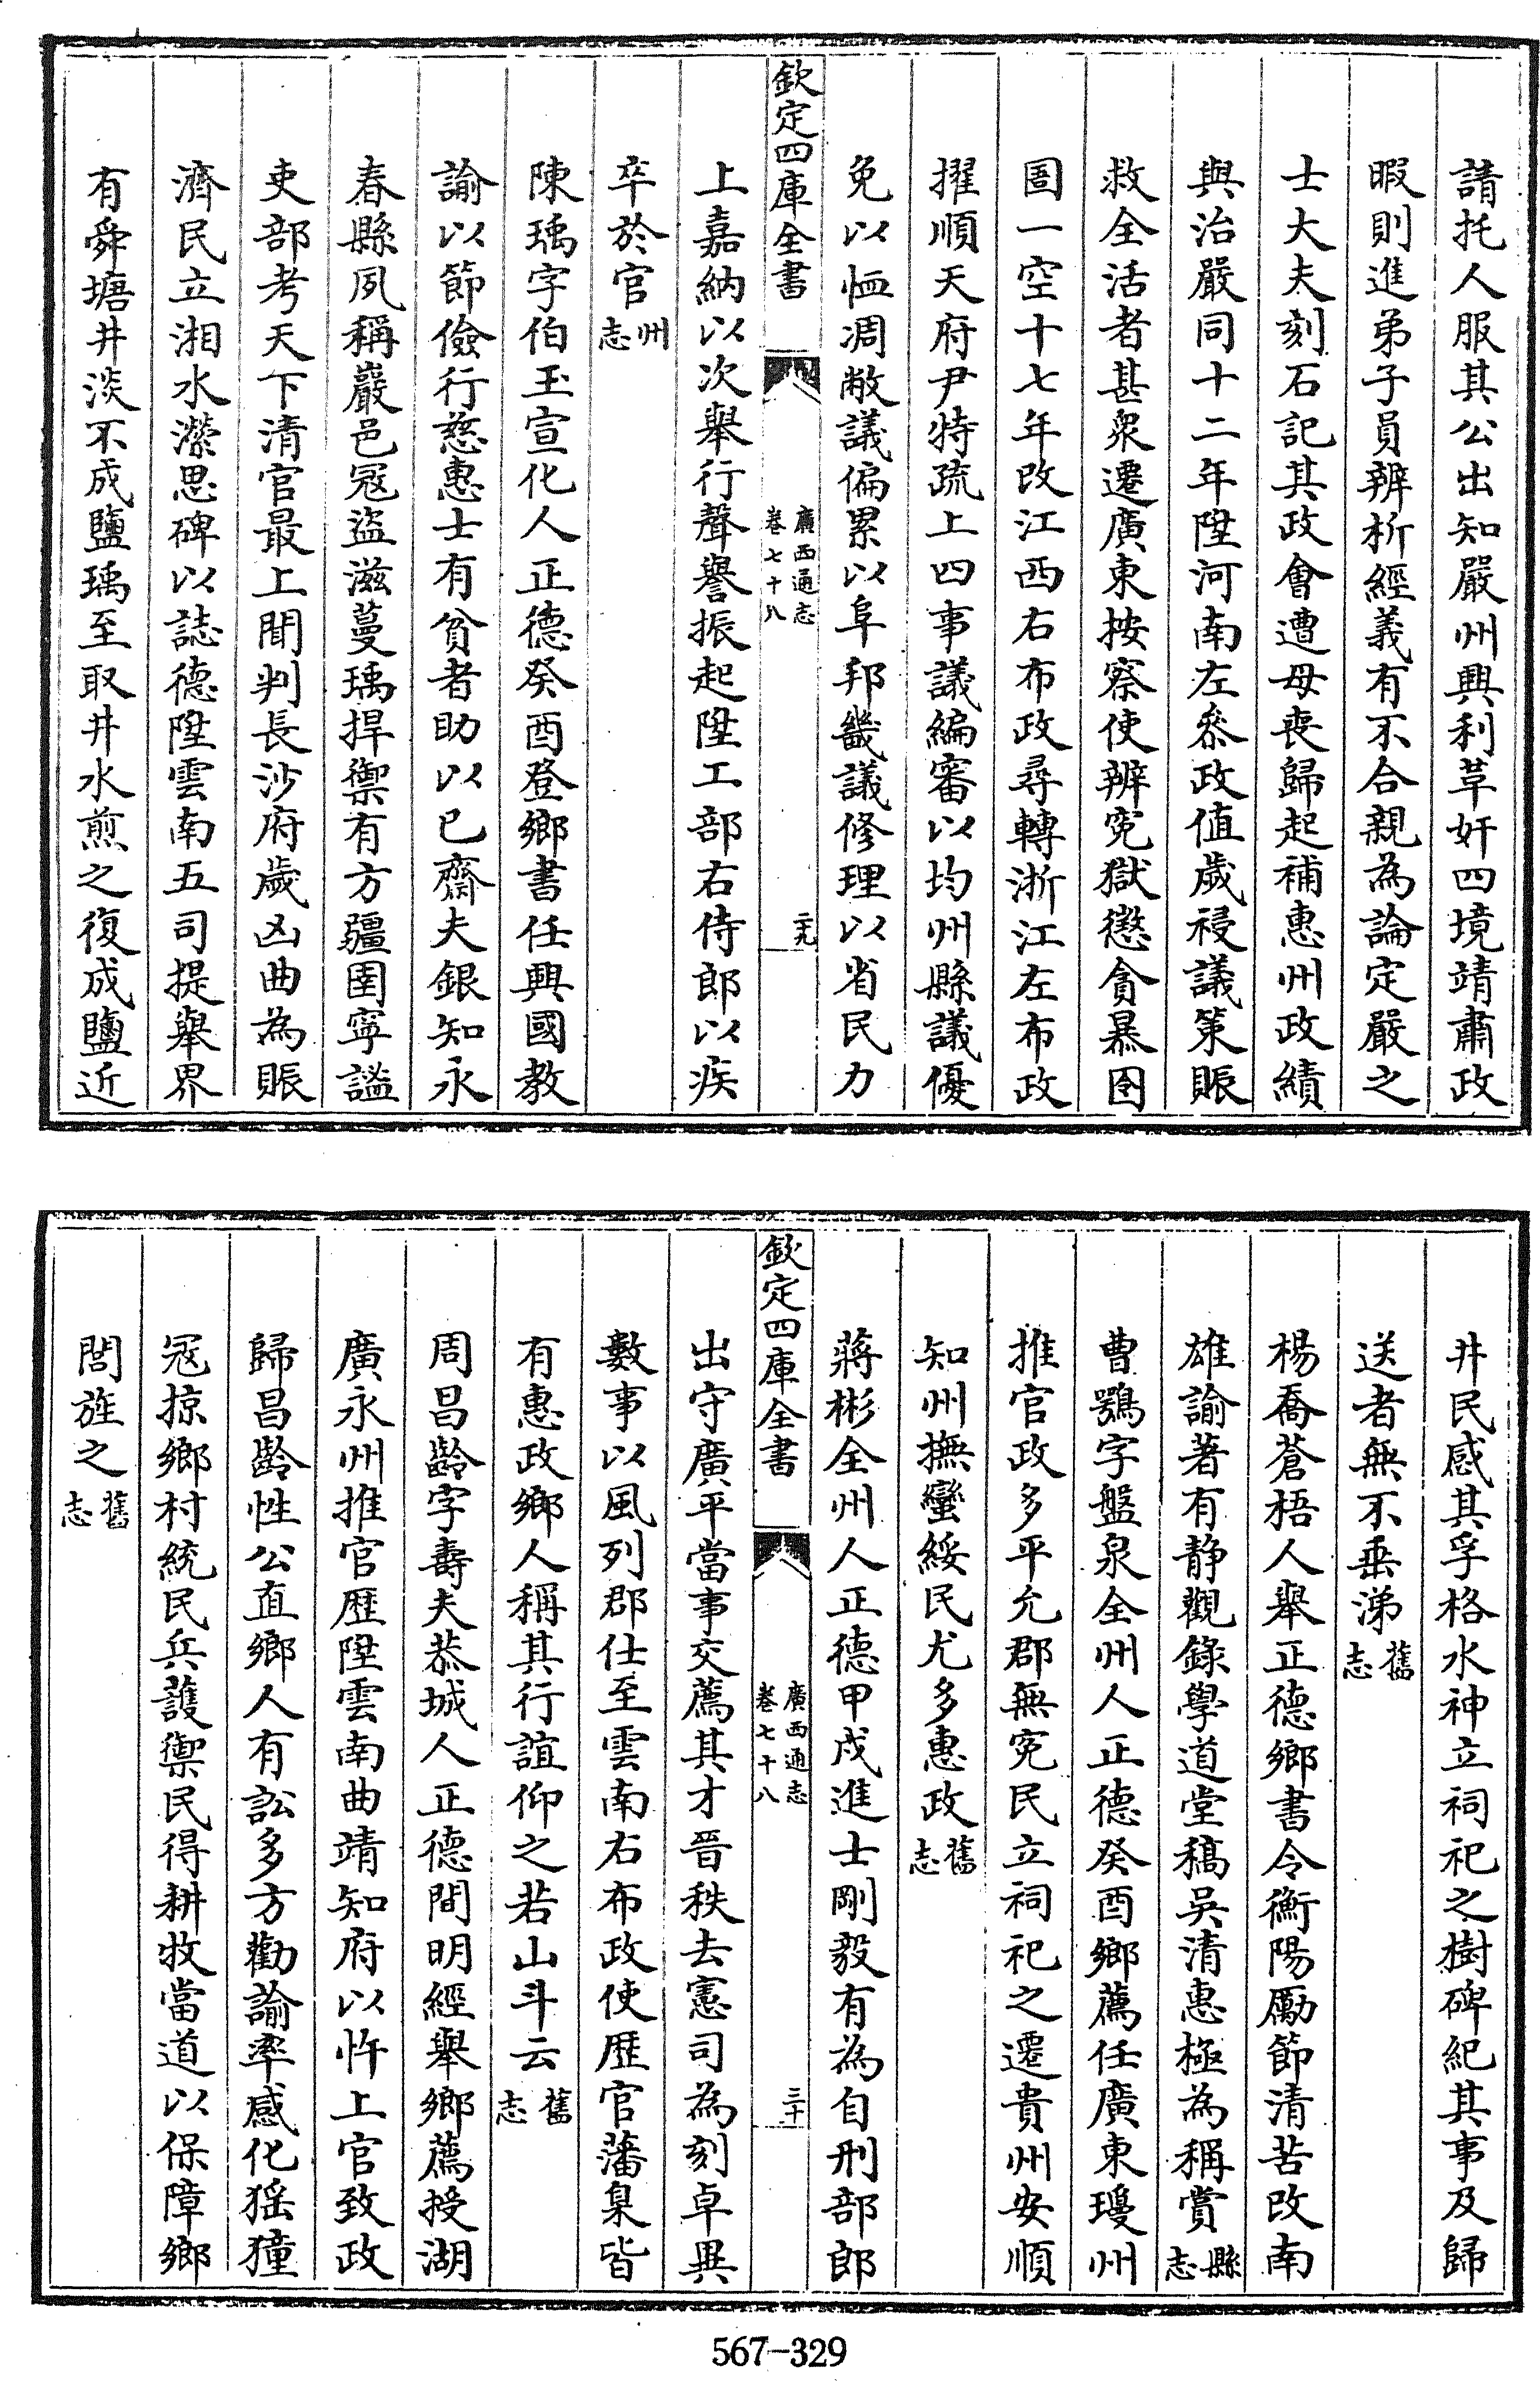 請托人服其公出知嚴州興利革奸四境靖肅政
暇則進弟子員辨析經義有不合親為論定嚴之
士大夫刻石記其政會遭母喪歸起補惠州政績
與治嚴同十二年陞河南左叅政值歲祲議策賑
救全活者甚衆遷廣東按察使辨寃獄懲貪暴囹
圄一空十七年改江西右布政尋轉浙江左布政
擢順天府尹特疏上四事議編審以均州縣議優
免以恤凋敝議偏累以阜邦畿議修理以省民力
欽定四庫全書
廣西通志
卷七十八
二十九
上嘉納以次舉行聲譽振起陞工部右侍郎以疾
卒於官州志
陳瑀字伯玉宣化人正德癸酉登鄉書任興國教
諭以節儉行慈惠士有貧者助以已齋夫銀知永
春縣夙稱嚴邑冦盜滋蔓瑀捍禦有方疆圉寜謐
吏部考天下清官最上聞判長沙府歲凶曲為賑
濟民立湘水瀠思碑以誌德陞雲南五司提舉界
有舜塘井淡不成鹽瑀至取井水煎之復成鹽近
井民感其孚格水神立祠祀之樹碑紀其事及歸
送者無不垂涕舊志
楊喬蒼梧人舉正德鄉書令衡陽勵節清苦改南
雄諭著有静觀錄學道堂稿吳清惠極為稱賞縣志
曹鶚字盤泉全州人正德癸酉鄉薦任廣東瓊州
推官政多平允郡無寃民立祠祀之遷貴州安順
知州撫蠻綏民尤多惠政舊志
蔣彬全州人正德甲戌進士剛毅有為自刑部郎
欽定四庫全書
廣西通志
卷七十八
三十
出守廣平當事交薦其才晉秩去憲司為刻卓異
數事以風列郡仕至雲南右布政使歴官藩臬皆
有惠政鄉人稱其行誼仰之若山斗云舊志
周昌齡字壽夫恭城人正德間明經舉鄉薦授湖
廣永州推官歴陞雲南曲靖知府以忤上官致政
歸昌齡性公直鄉人有訟多方勸諭率感化猺獞
冦掠鄉村統民兵護禦民得耕牧當道以保障鄉
閭旌之舊志
567-329